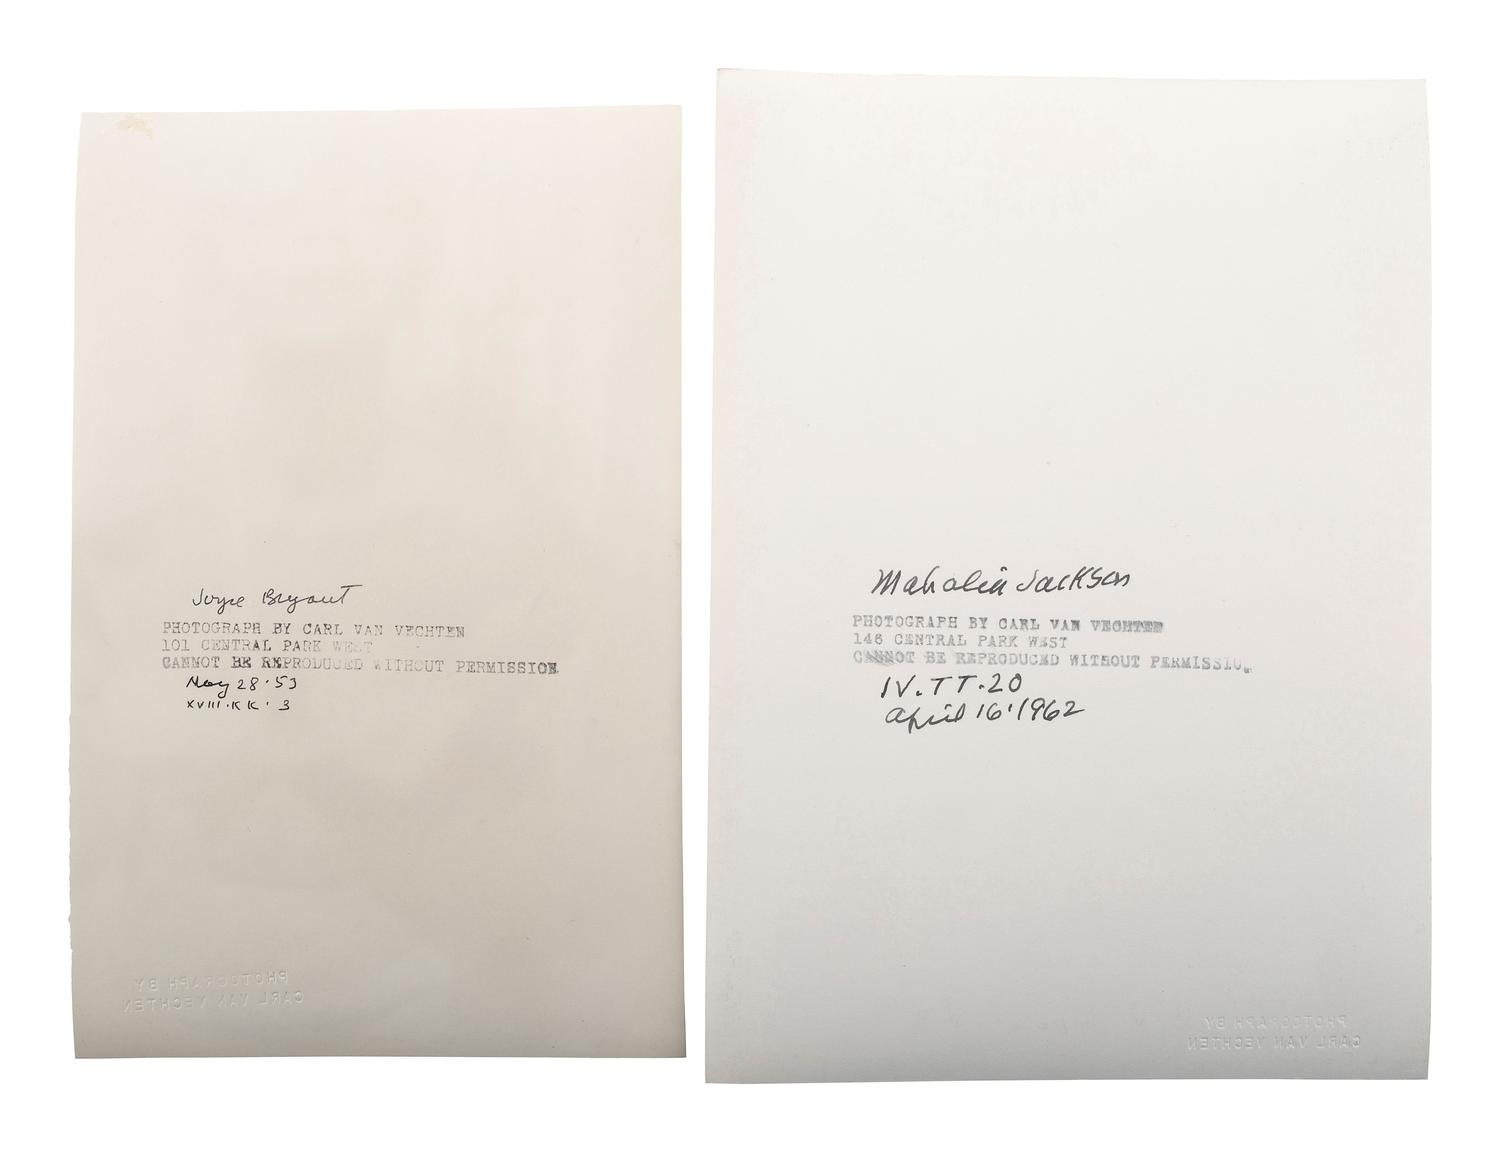 Joyce Bryant
PHOTOGRAPH BY CARL VAN VECHTEN
101 CENTRAL PARK WEST
CANNOT BE REPRODUCED WITHOUT PERMISSION
May 28·53
XVIII·KK·3
PHOTOGRAPH BY
CARL VAN VECHTEN
Mahalia Jackson
PHOTOGRAPH BY CARL VAN VECHTEN
146 CENTRAL PARK WEST
CANNOT BE REPRODUCED WITHOUT PERMISSIO
IV.TT.20
April 16·1962
PHOTOGRAPH BY
CARL VAN VECHTEN